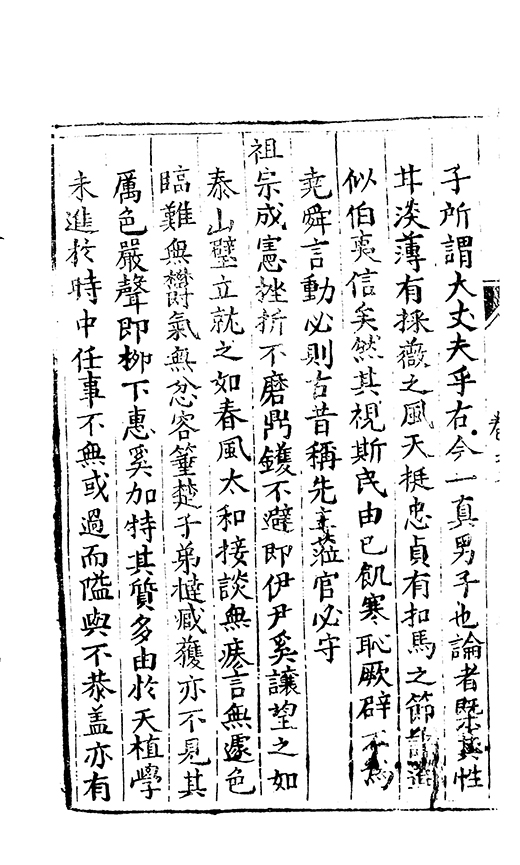 子所謂大丈夫乎右今一真男子也論者槩其性
甘淡薄有採薇之風天挺忠貞有扣馬之節謂
似伯夷信矣然其視斯民由己飢寒恥厥辟不為
堯舜言動必則古昔稱先王蒞官必守
祖宗成憲挫折不磨鼎鑊不避即伊尹奚讓望之如
泰山壁立就之如春風太和接談無疾言無遽色
臨難無欝氣無忿容箠楚子弟撻臧獲亦不見其
厲色嚴聲即柳下惠奚加特其質多由於天植學
未進於時中任事不無或過而隘與不恭盖亦有
卷